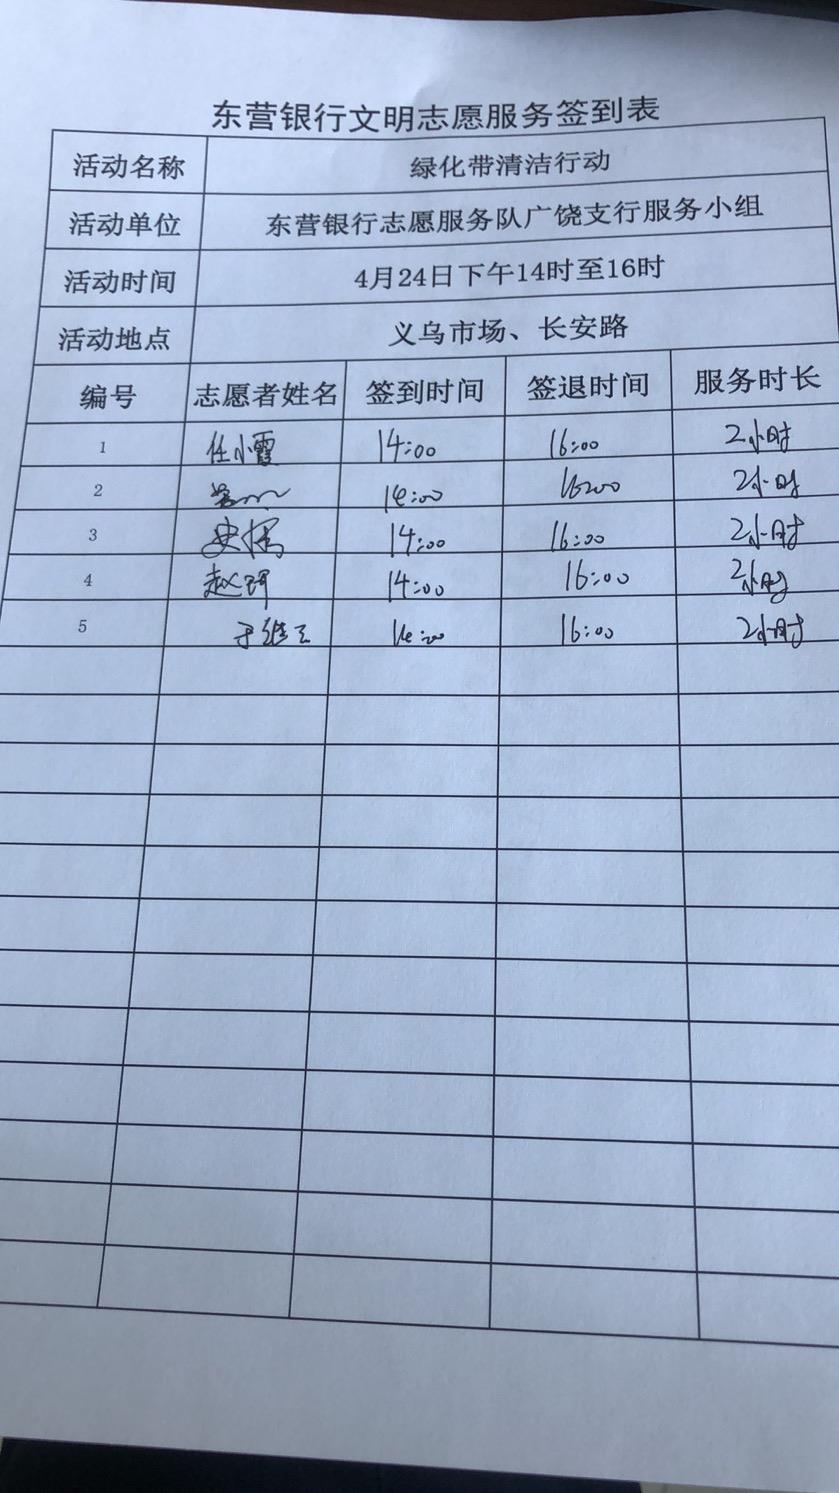 东营银行文明志愿服务签到表
活动名称 绿化带清洁行动
活动单位 东营银行志愿服务队广饶支行服务小组
活动时间 4月24日下午14时至16时
活动地点 义乌市场、长安路
编号 志愿者姓名 签到时间 签退时间 服务时长
1 任小霞 14:00 16:00 2小时
2 14:00 16:00 2小时
3 14:00 16:00 2小时
4 赵珂 14:00 16:00 2小时
5 14:00 16:00 2小时